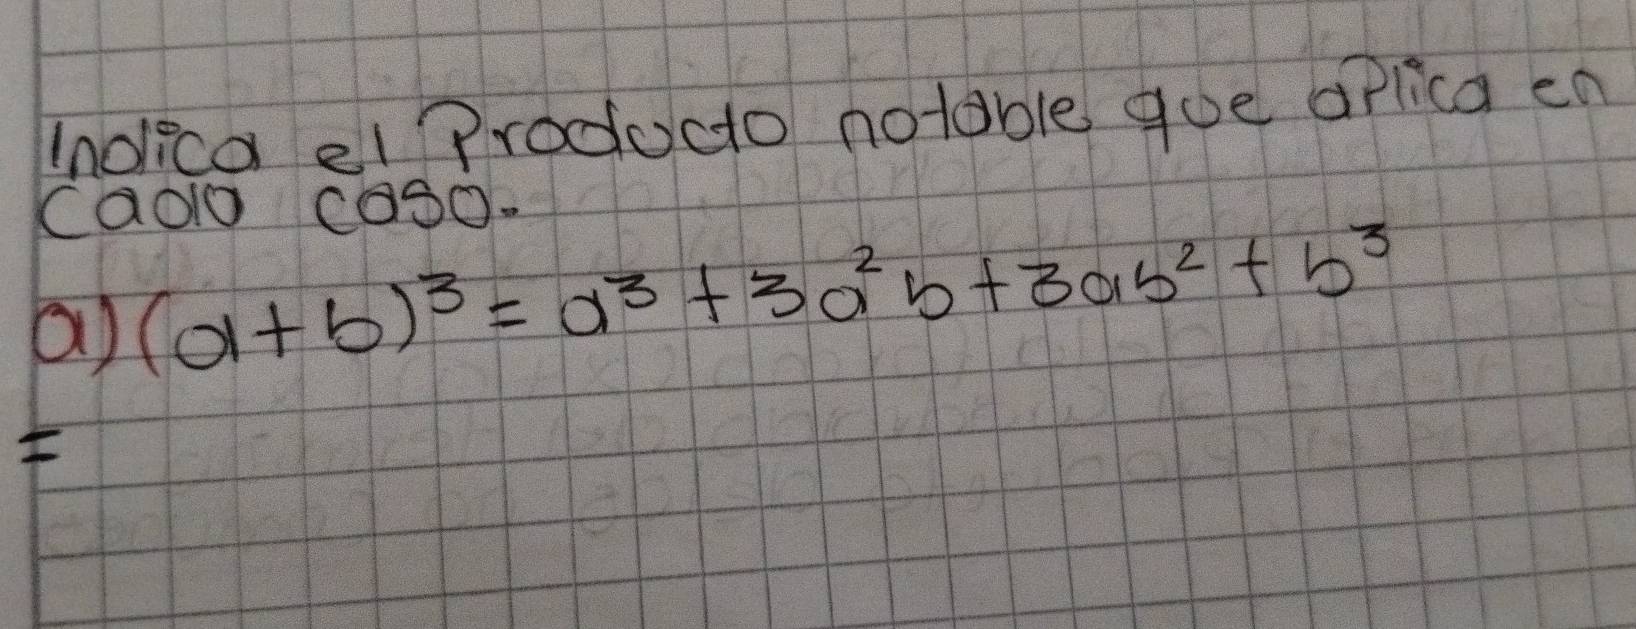 Indica el Producto notable que aplica en
cada caso.
a) (a+b)³ = a³ + 3a²b + 3ab² + b³
=